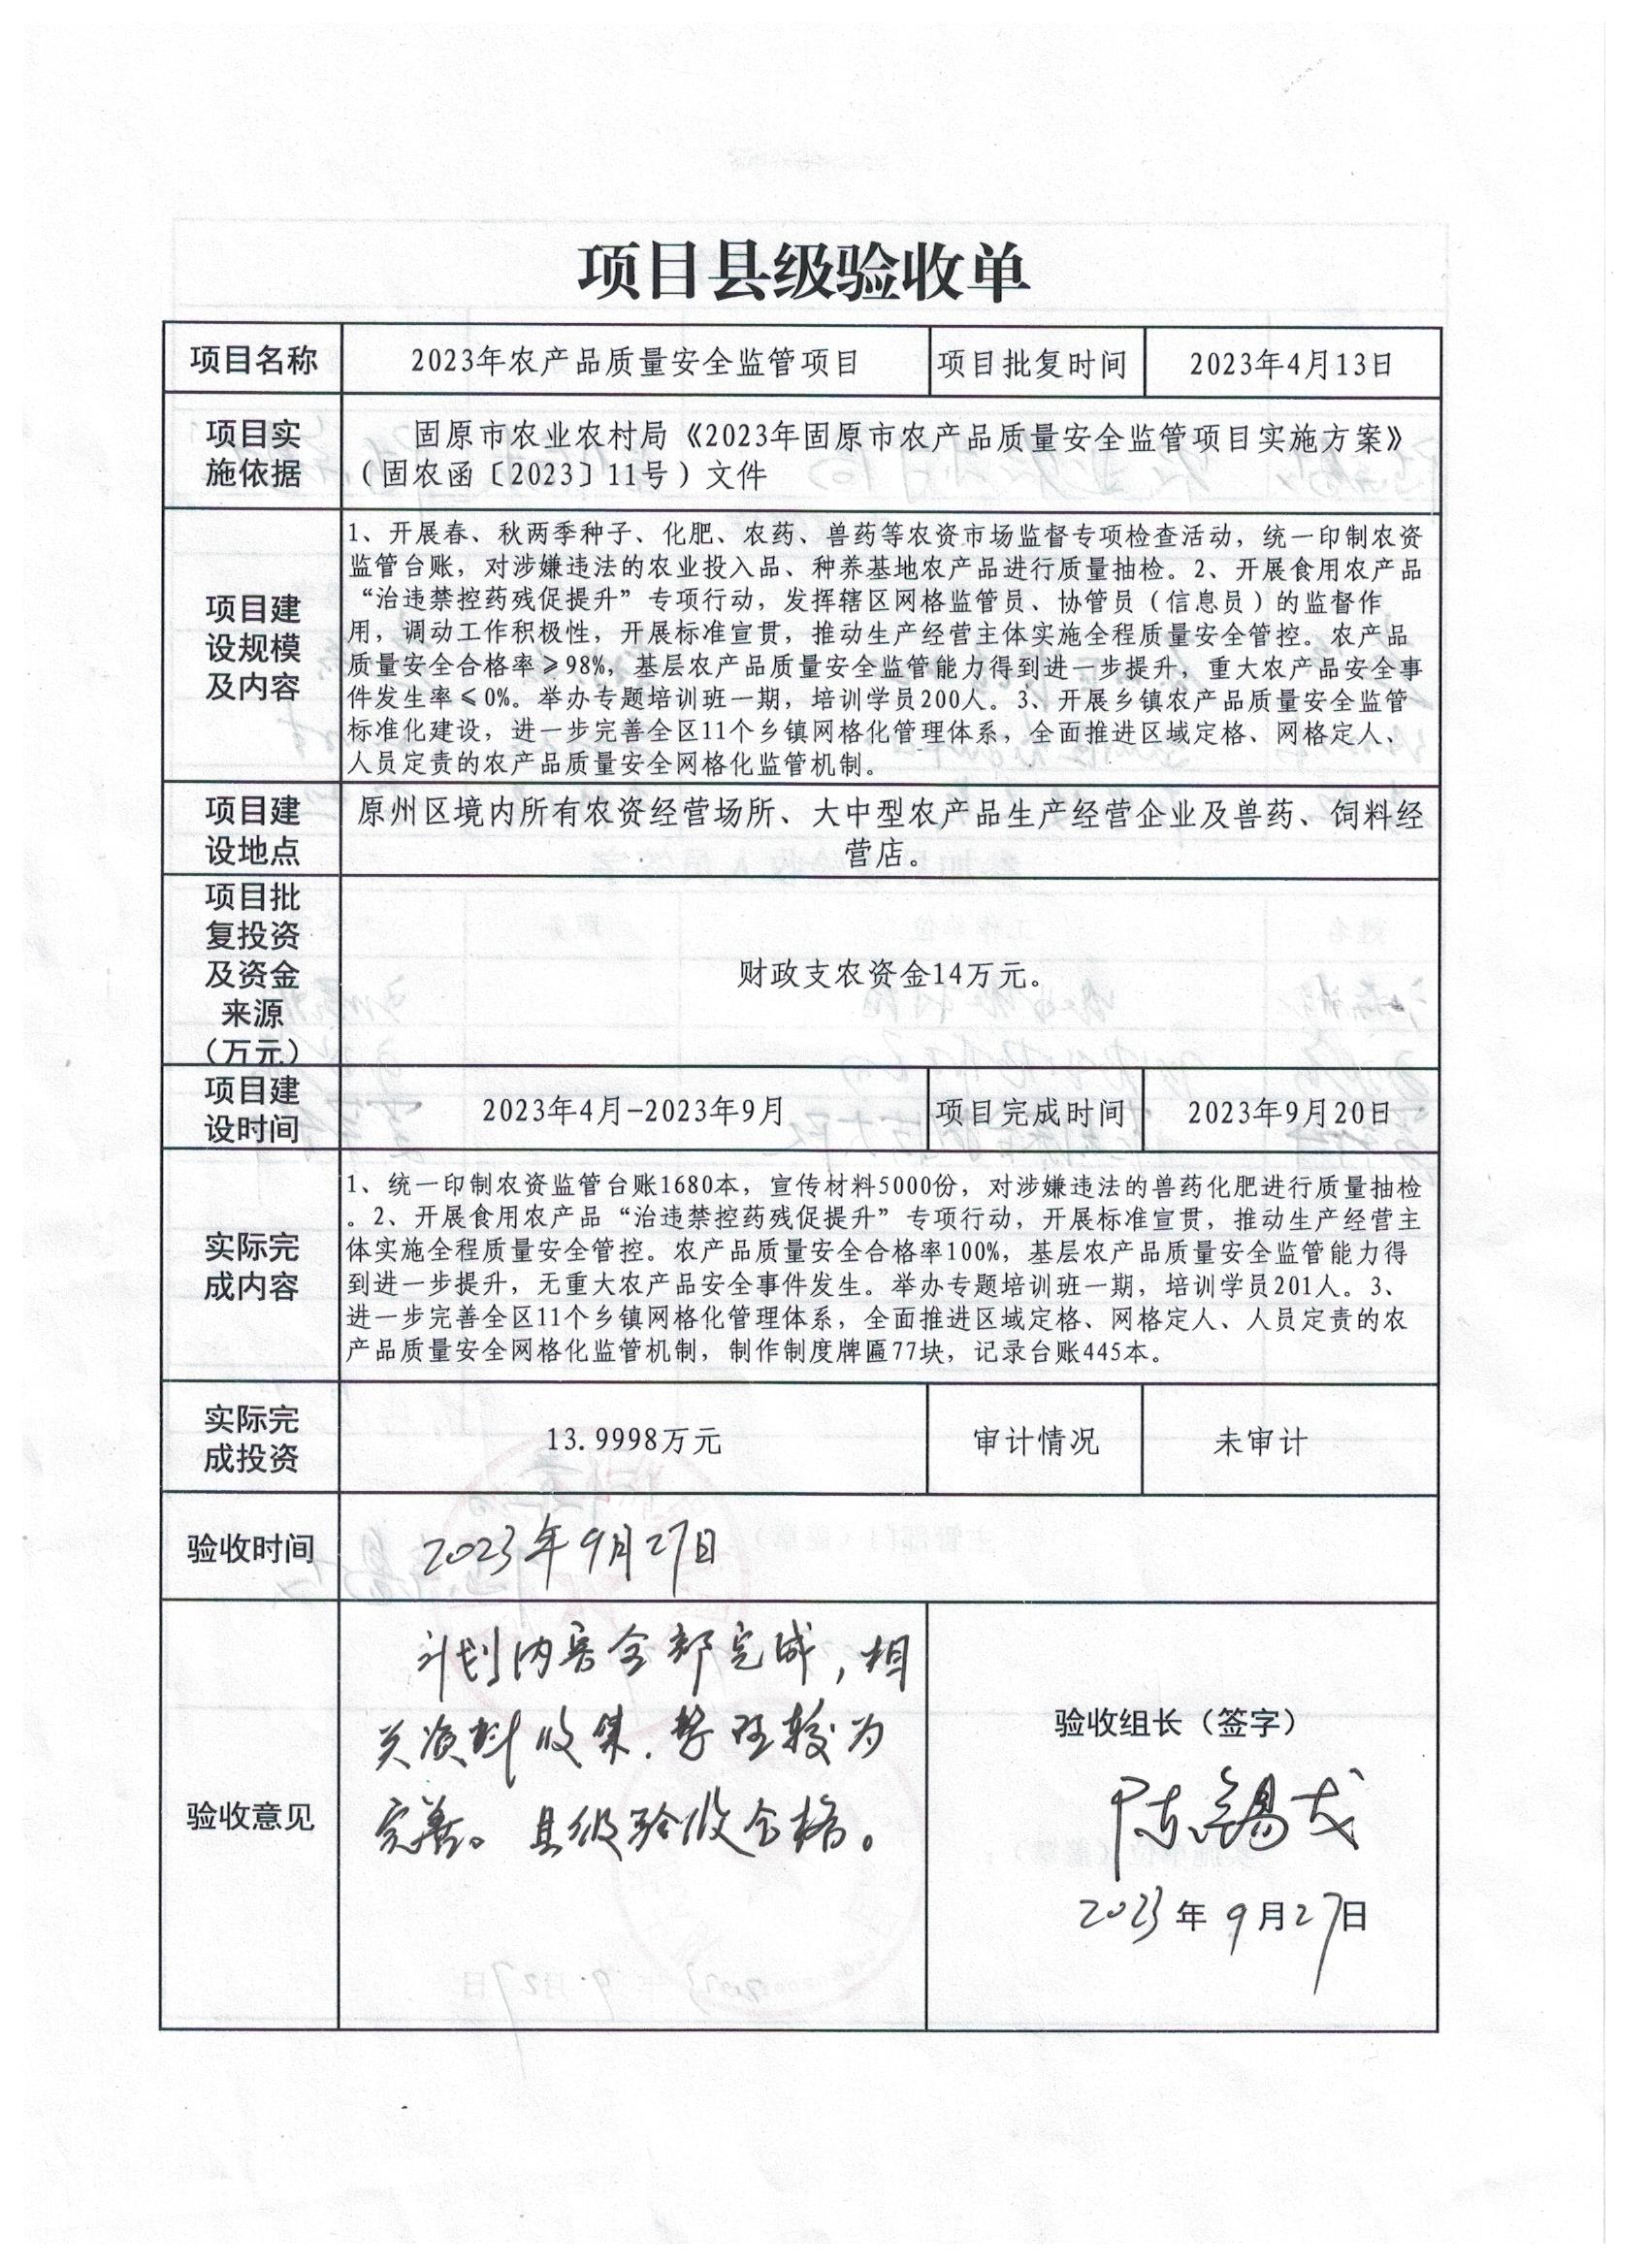 项目县级验收单
项目名称 2023年农产品质量安全监管项目 项目批复时间 2023年4月13日
项目实
施依据
固原市农业农村局《2023年固原市农产品质量安全监管项目实施方案》
（固农函〔2023〕11号）文件
项目建
设规模
及内容
1、开展春、秋两季种子、化肥、农药、兽药等农资市场监督专项检查活动，统一印制农资
监管台账，对涉嫌违法的农业投入品、种养基地农产品进行质量抽检。2、开展食用农产品
“治违禁控药残促提升”专项行动，发挥辖区网格监管员、协管员（信息员）的监督作
用，调动工作积极性，开展标准宣贯，推动生产经营主体实施全程质量安全管控。农产品
质量安全合格率≥98%，基层农产品质量安全监管能力得到进一步提升，重大农产品安全事
件发生率≤0%。举办专题培训班一期，培训学员200人。3、开展乡镇农产品质量安全监管
标准化建设，进一步完善全区11个乡镇网格化管理体系，全面推进区域定格、网格定人、
人员定责的农产品质量安全网格化监管机制。
项目建
设地点
原州区境内所有农资经营场所、大中型农产品生产经营企业及兽药、饲料经
营店。
项目批
复投资
及资金
来源
（万元）
财政支农资金14万元。
项目建
设时间
2023年4月-2023年9月 项目完成时间 2023年9月20日
实际完
成内容
1、统一印制农资监管台账1680本，宣传材料5000份，对涉嫌违法的兽药化肥进行质量抽检
。2、开展食用农产品“治违禁控药残促提升”专项行动，开展标准宣贯，推动生产经营主
体实施全程质量安全管控。农产品质量安全合格率100%，基层农产品质量安全监管能力得
到进一步提升，无重大农产品安全事件发生。举办专题培训班一期，培训学员201人。3、
进一步完善全区11个乡镇网格化管理体系，全面推进区域定格、网格定人、人员定责的农
产品质量安全网格化监管机制，制作制度牌匾77块，记录台账445本。
实际完
成投资
13.9998万元 审计情况 未审计
验收时间 2023年9月27日
验收意见
计划内容全部完成，相
关资料收集.整理较为
完善。县级验收合格。
验收组长（签字）
陈锡戈
2023年9月27日